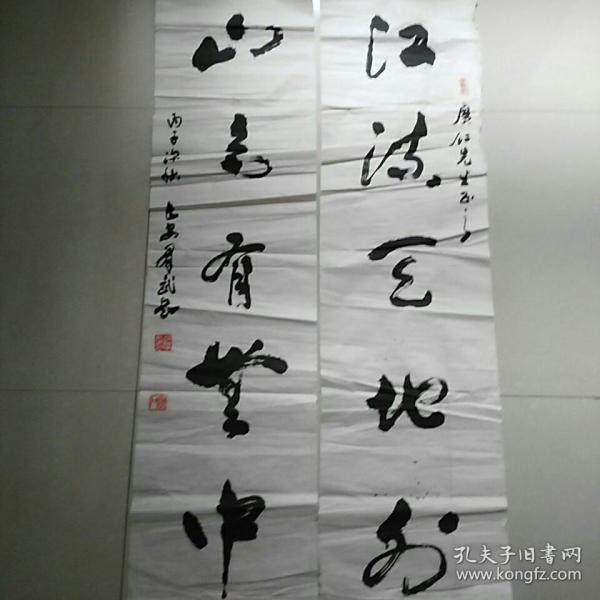 廣仁先生正之
江流天地外
山色有無中
丙子深秋 長安羣武書
孔夫子旧书网
www.kongfz.com